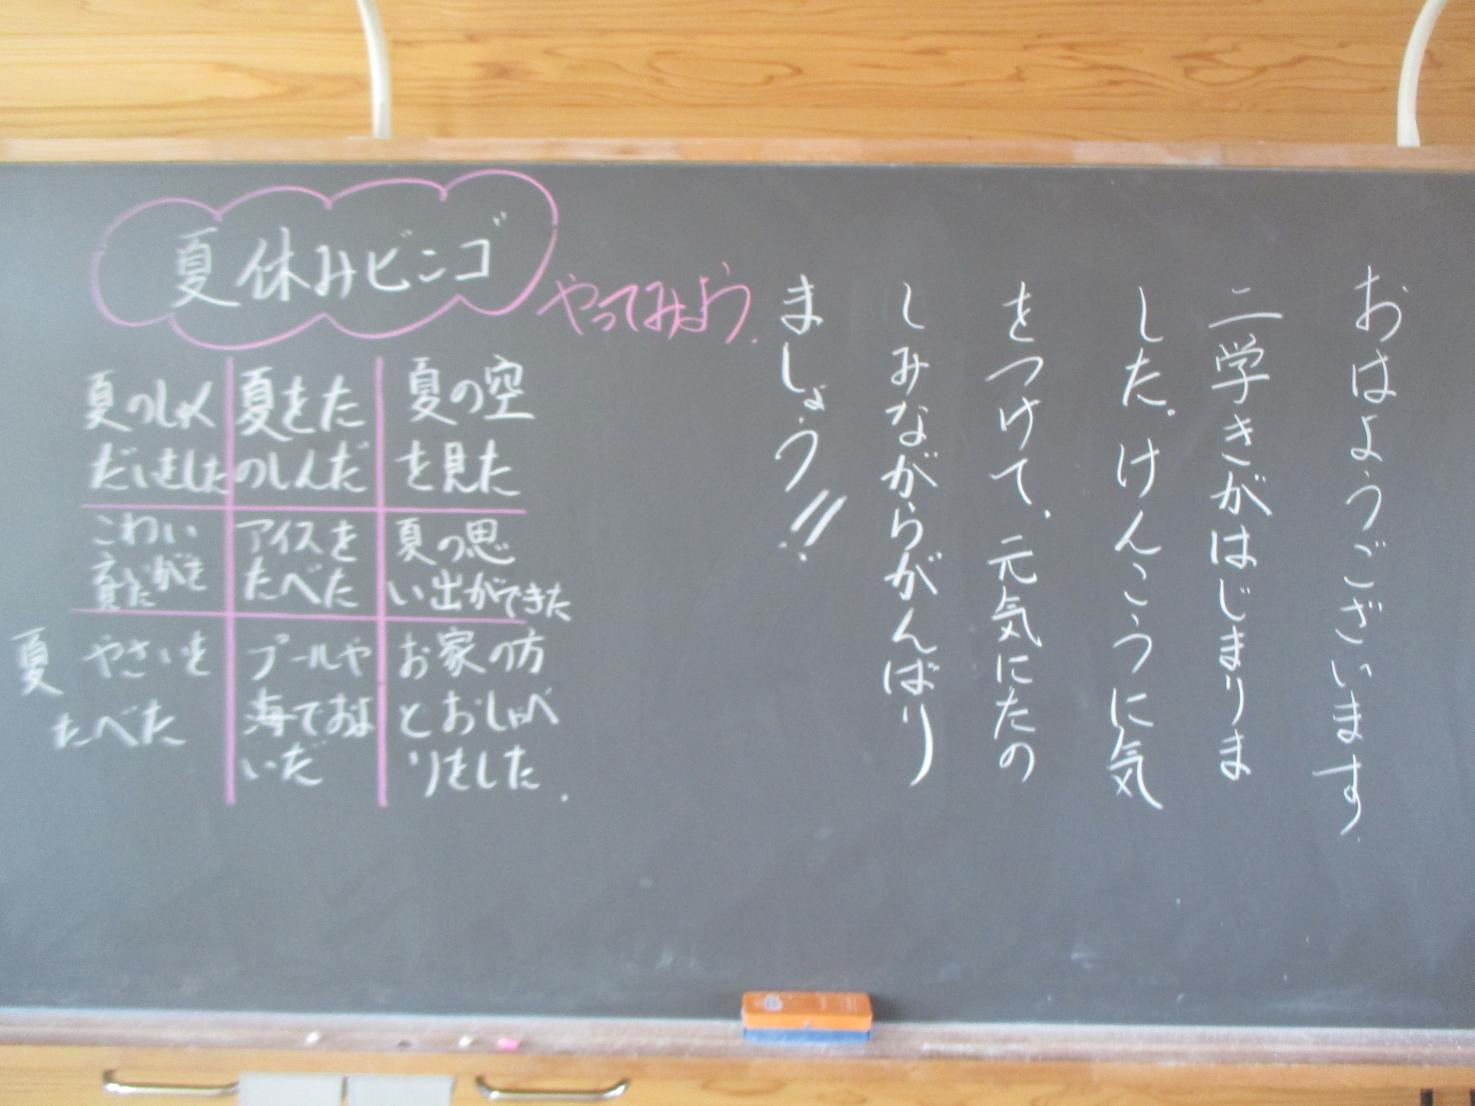 おはようございます。
二学きがはじまりま
した。けんこうに気
をつけて、元気にたの
しみながらがんばり
ましょう!!
夏休みビンゴ
やってみよう。
夏のしゅく
だいをした
夏をた
のしんだ
夏の空
を見た
こわい
えいがを
見た
アイスを
たべた
夏の思
い出ができた
夏やさいを
たべた
プールや
海でおよ
いだ
お家の方
とおしゃべ
りをした。